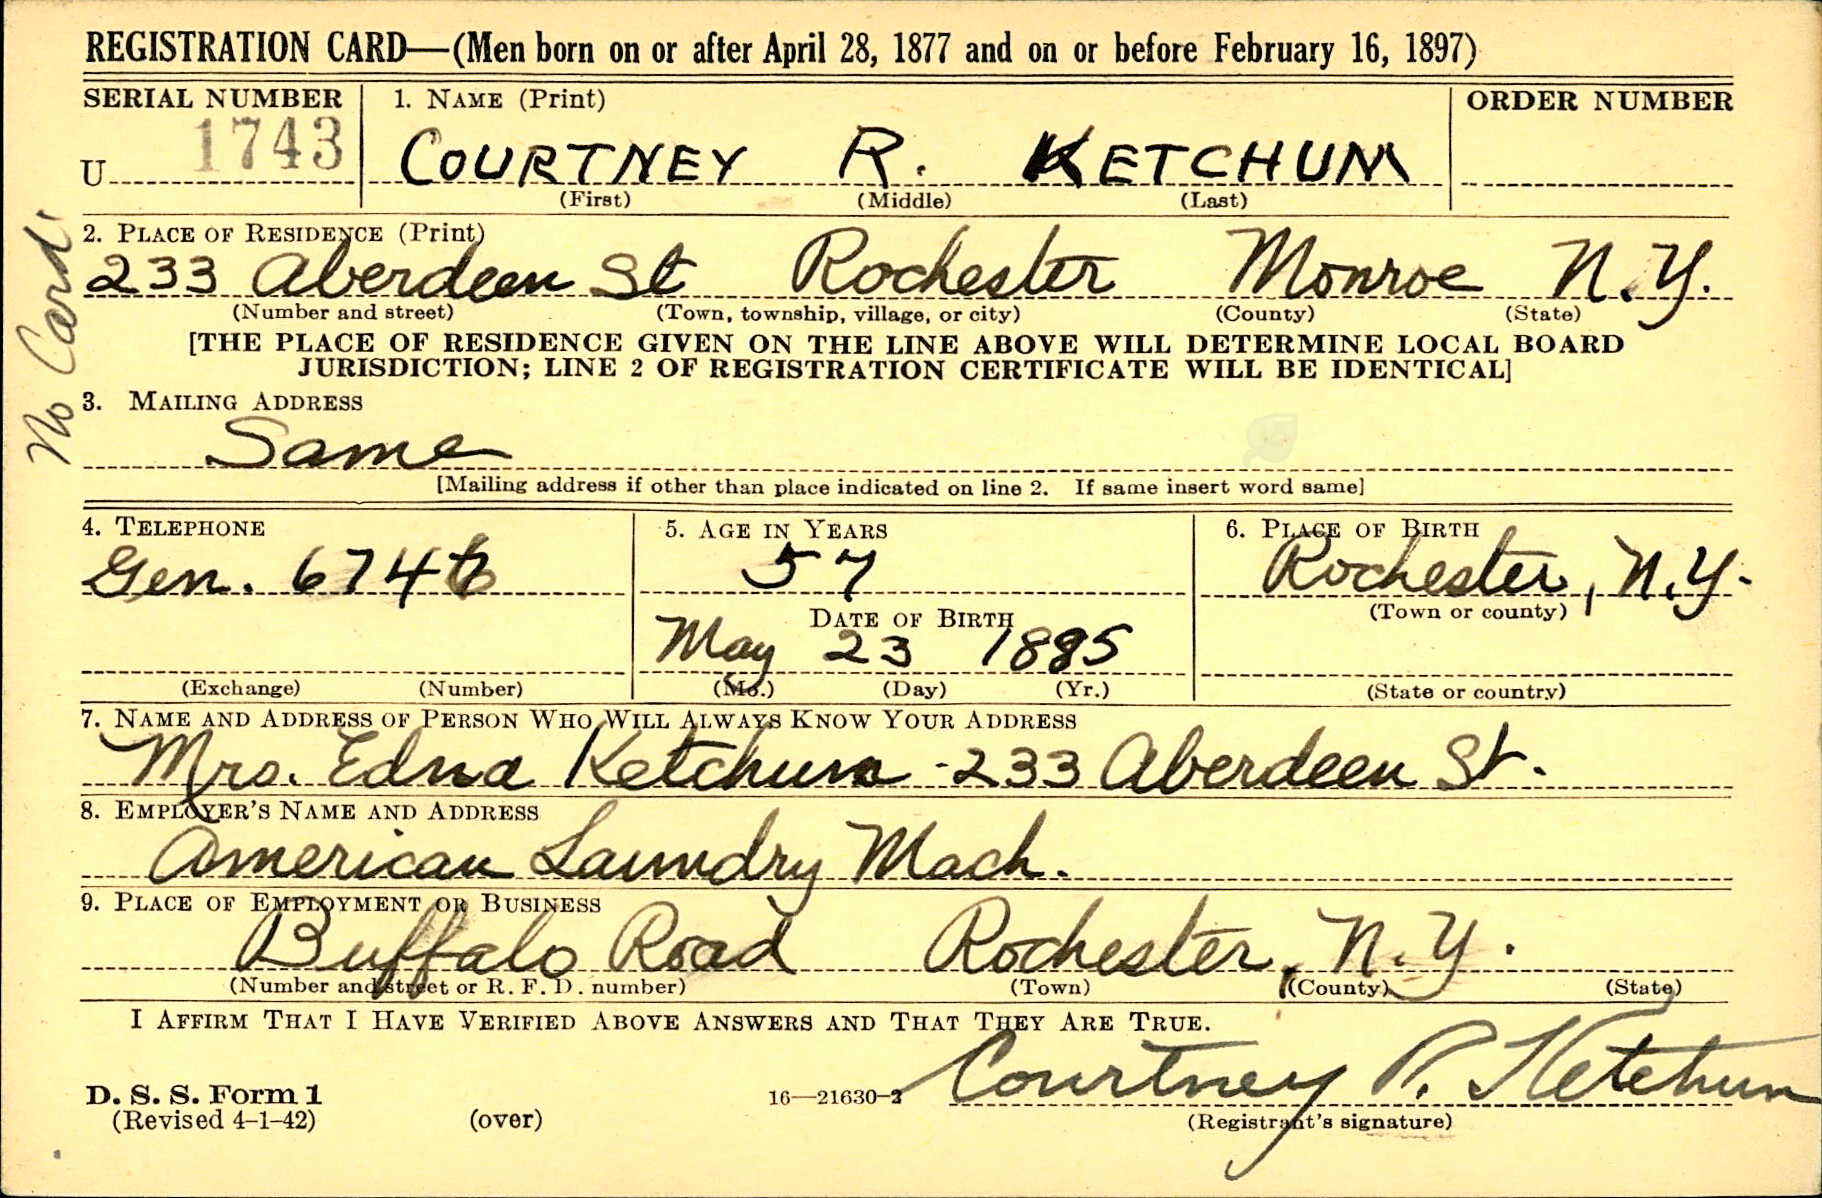 REGISTRATION CARD—(Men born on or after April 28, 1877 and on or before February 16, 1897)
SERIAL NUMBER
1. NAME (Print)
ORDER NUMBER
U 1743
COURTNEY R. KETCHUM
(First) (Middle) (Last)
No Card
2. PLACE OF RESIDENCE (Print)
233 Aberdeen St Rochester Monroe N.Y.
(Number and street) (Town, township, village, or city) (County) (State)
[THE PLACE OF RESIDENCE GIVEN ON THE LINE ABOVE WILL DETERMINE LOCAL BOARD
JURISDICTION; LINE 2 OF REGISTRATION CERTIFICATE WILL BE IDENTICAL]
3. MAILING ADDRESS
Same
[Mailing address if other than place indicated on line 2. If same insert word same]
4. TELEPHONE
5. AGE IN YEARS
6. PLACE OF BIRTH
Gen.
57
Rochester, N.Y.
(Town or county)
DATE OF BIRTH
May 23 1885
(Exchange) (Number)
(Mo.) (Day) (Yr.)
(State or country)
7. NAME AND ADDRESS OF PERSON WHO WILL ALWAYS KNOW YOUR ADDRESS
Mrs. Edna Ketchum - 233 Aberdeen St.
8. EMPLOYER'S NAME AND ADDRESS
American Laundry Mach.
9. PLACE OF EMPLOYMENT OR BUSINESS
Buffalo Road Rochester, N.Y.
(Number and street or R. F. D. number) (Town) (County) (State)
I AFFIRM THAT I HAVE VERIFIED ABOVE ANSWERS AND THAT THEY ARE TRUE.
D. S. S. Form 1
(Revised 4-1-42)
(over)
16—21630-2
Courtney R. Ketchum
(Registrant's signature)